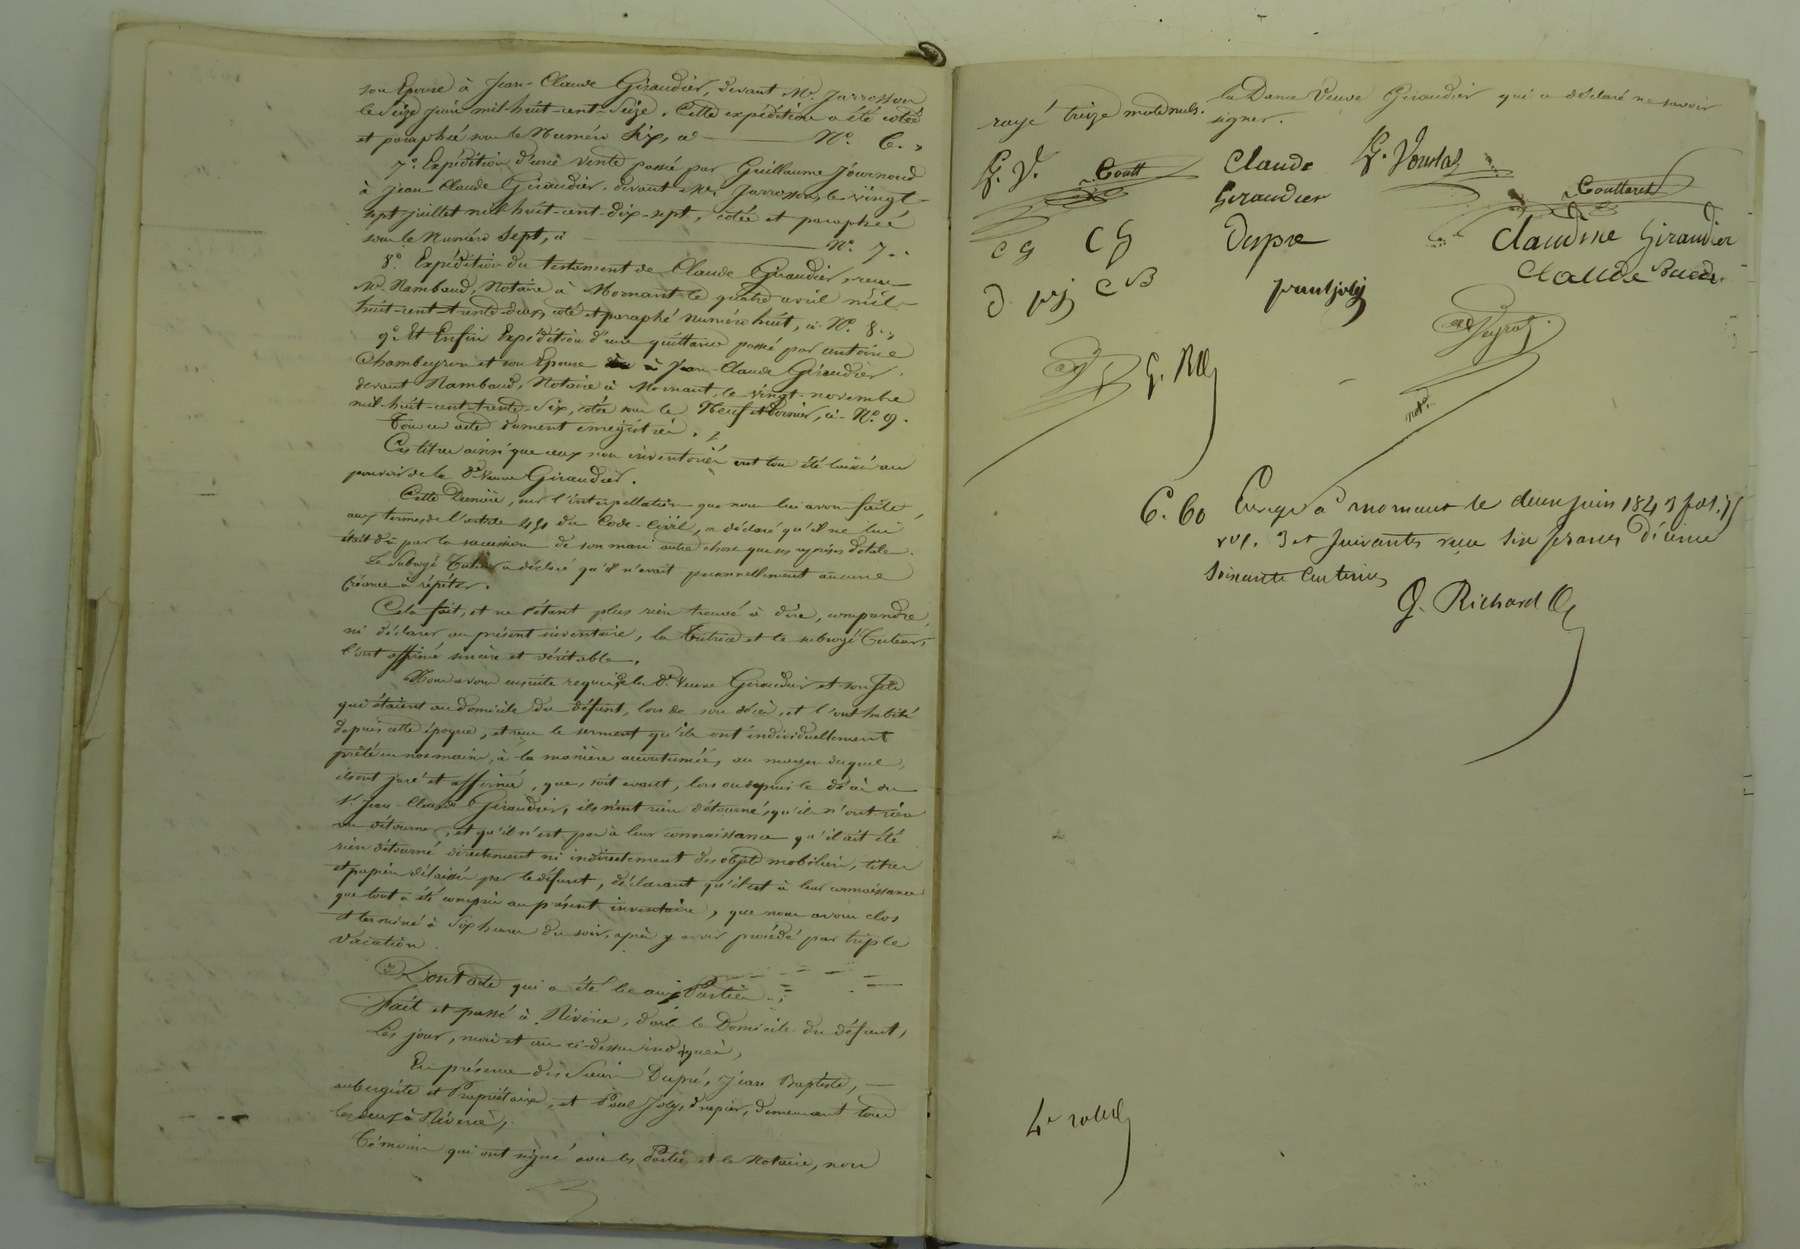 son Epouse à Jean-Claude Giraudier, devant Me Jarrosson
le Seize juin mil-huit-cent-Seize. Cette expédition a été cotée
et paraphée sous le Numéro Six, ci — No. 6.
7o. Expédition d'une vente passée par Guillaume Journoud
à Jean Claude Giraudier devant Me Jarrosson, le vingt-
sept juillet mil-huit-cent-dix-sept, cotée et paraphée
sous le Numéro Sept, ci — No. 7.
8o. Expédition du testament de Claude Giraudier, reçu
Me. Rambaud, Notaire à Mornant le quatre avril mil-
huit-cent-trente-deux, coté et paraphé numéro huit, ci No. 8.
9o. Et Enfin Expédition d'une quittance passée par antoine
Chambeyron et son Epouse à Jean-Claude Giraudier
devant Rambaud, Notaire à Mornant, le vingt novembre
mil-huit-cent-trente-Six, cotée sous le Neuf et dernier, ci No. 9.
Tous ces actes dument enregistrés.
Ces titres ainsi que ceux non inventoriés ont tous été laissés au
pouvoir de la De. Veuve Giraudier.
Cette Dernière, sur l'interpellation que nous lui avons faite,
aux termes de l'article 451 du Code-Civil, a déclaré qu'il ne lui
était dû par la succession de son mari autre chose que ses reprises dotales.
Le Subrogé Tuteur a déclaré qu'il n'avait personnellement aucune
Créance à répéter.
Cela fait, et ne s'étant plus rien trouvé à dire, comprendre,
ni déclarer au présent inventaire, la Tutrice et le subrogé Tuteur,
l'ont affirmé sincère et véritable.
Nous avons ensuite requis la De. Veuve Giraudier et son fils
qui étaient au domicile du défunt, lors de son décès, et l'ont habité
depuis cette époque, et reçu le serment qu'ils ont individuellement
prêté en nos mains, à la manière accoutumée, au moyen duquel,
ils ont juré et affirmé, que, soit avant, lors ou depuis le décès du
Sr. Jean-Claude Giraudier, ils n'ont rien détourné, qu'ils n'ont rien
vu détourner, et qu'il n'est pas à leur connaissance qu'il ait été
rien détourné directement ni indirectement des objets mobiliers, titres
et papiers délaissés par le défunt, déclarant qu'il est à leur connaissance
que tout a été compris au présent inventaire, que nous avons clos
et terminé à Six heures du soir, après y avoir procédé par triple
vacation.
Dont acte qui a été lu aux Parties
Fait et passé à Riverie, dans le Domicile du défunt,
Les jour, mois et an ci-dessus indiqués,
En présence des Sieurs Dupré, Jean Baptiste,
aubergiste et Propriétaire, et Paul Joly, drapier, demeurant tous
les deux à Riverie,
Témoins qui ont signé avec les Parties et le Notaire, non
la Dame Veuve Giraudier qui a déclaré ne savoir
signer.
rayé treize mots nuls.
G. V. Coutt Claude
Giraudier G. Voulas
Couttaret
C G C G Dupre Claudine Giraudier
Claude
D. pj C B pauljoly
Peyrot
G. R
notre
6. 60 Enregé à mornant le deux juin 1843 fol. 75
ro c. 3 et suivantes reçu six francs Décime
soixante Centimes
G. Richard
4 roles